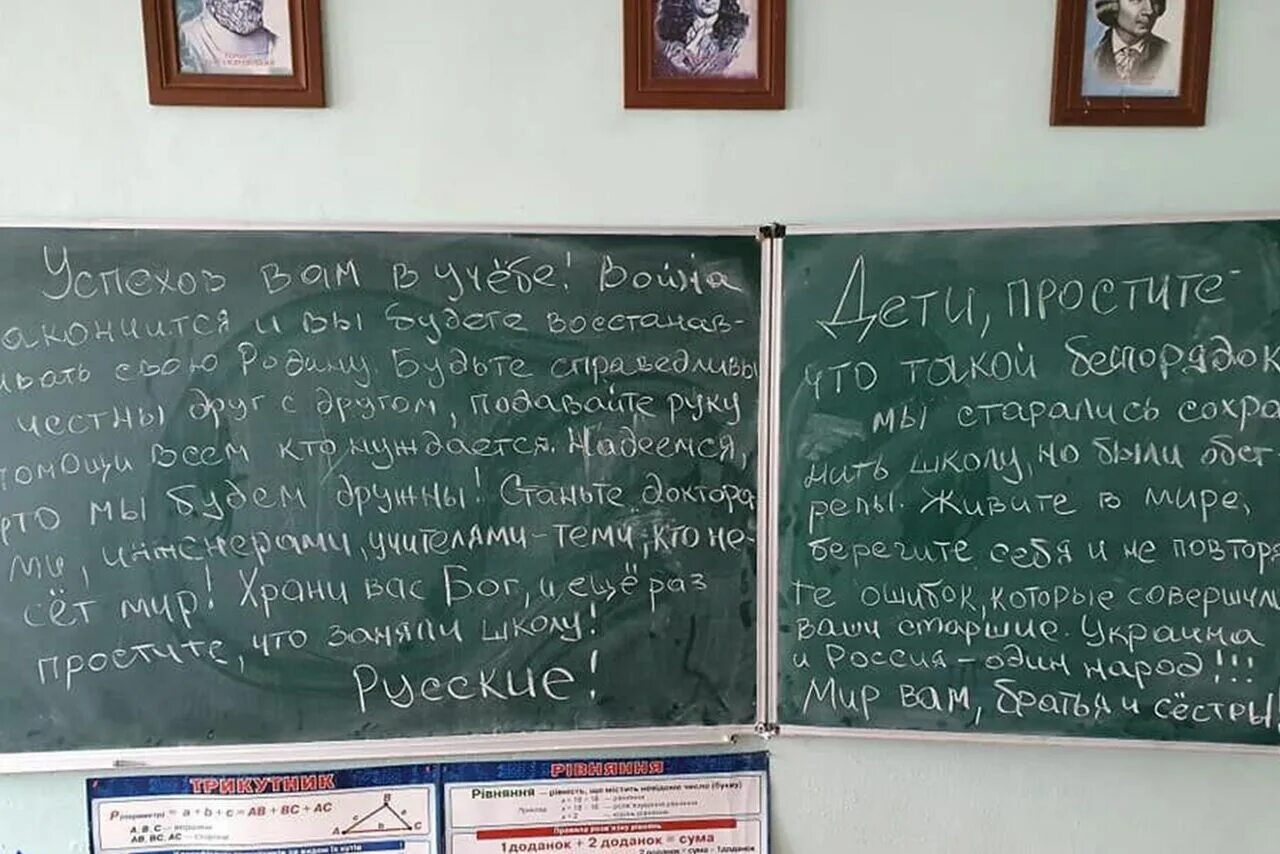 Успехов вам в учёбе! Война
акончится и вы будете восстанав-
ивать свою Родину. Будьте справедливы
честны друг с другом, подавайте руку
помощи всем кто нуждается. Надеемся,
что мы будем дружны! Станьте доктора-
ми, инженерами, учителями - теми, кто не-
сёт мир! Храни вас Бог, и ещё раз
простите, что заняли школу!
Русские!
Дети, простите
что такой беспорядок
мы старались сохра
нить школу, но были обст-
релы. Живите в мире,
берегите себя и не повторя
те ошибок, которые совершили
ваши старшие. Украина
и Россия - один народ!!!
Мир вам, братья и сёстры
ТРИКУТНИК
P = a + b + c = AB + BC + AC
A, B, C — вершини
AB, BC, AC — сторони
A
B
C
b
РІВНЯННЯ
Рівняння — рівність, що містить невідоме число (букву)
Правила розв'язку рівнянь
1доданок + 2 доданок = сума